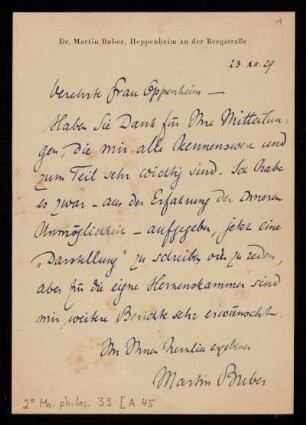 1
Dr. Martin Buber, Heppenheim an der Bergstraße
23 XII 29
Verehrte Frau Oppenheim —
Haben Sie Dank für Ihre Mitteilun-
gen, die mir alle kennenswert und
zum Teil sehr wichtig sind. Ich habe
es zwar – aus der Erfahrung der inneren
Unmöglichkeit – aufgegeben, jetzt eine
„Darstellung" zu schreiben oder zu reden,
aber für die eigne Herzenskammer sind
mir weitere Berichte sehr erwünscht.
Ihr Ihnen herzlich ergebener
Martin Buber
2° Ms. philos. 39 [A 45